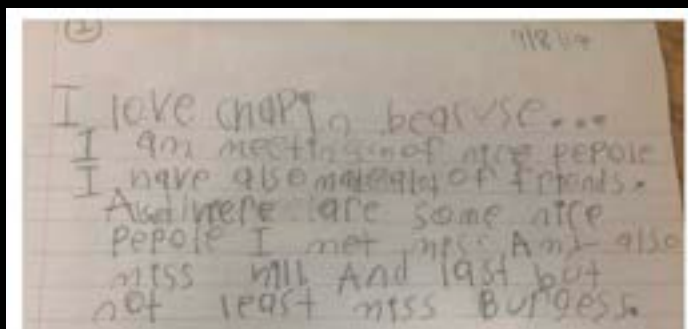 1
I love chapin begause...
I am meeting of nice pepole
I have also of friends.
And are some nice
pepole I met miss And also
miss hill And last but
not least miss Burgess.